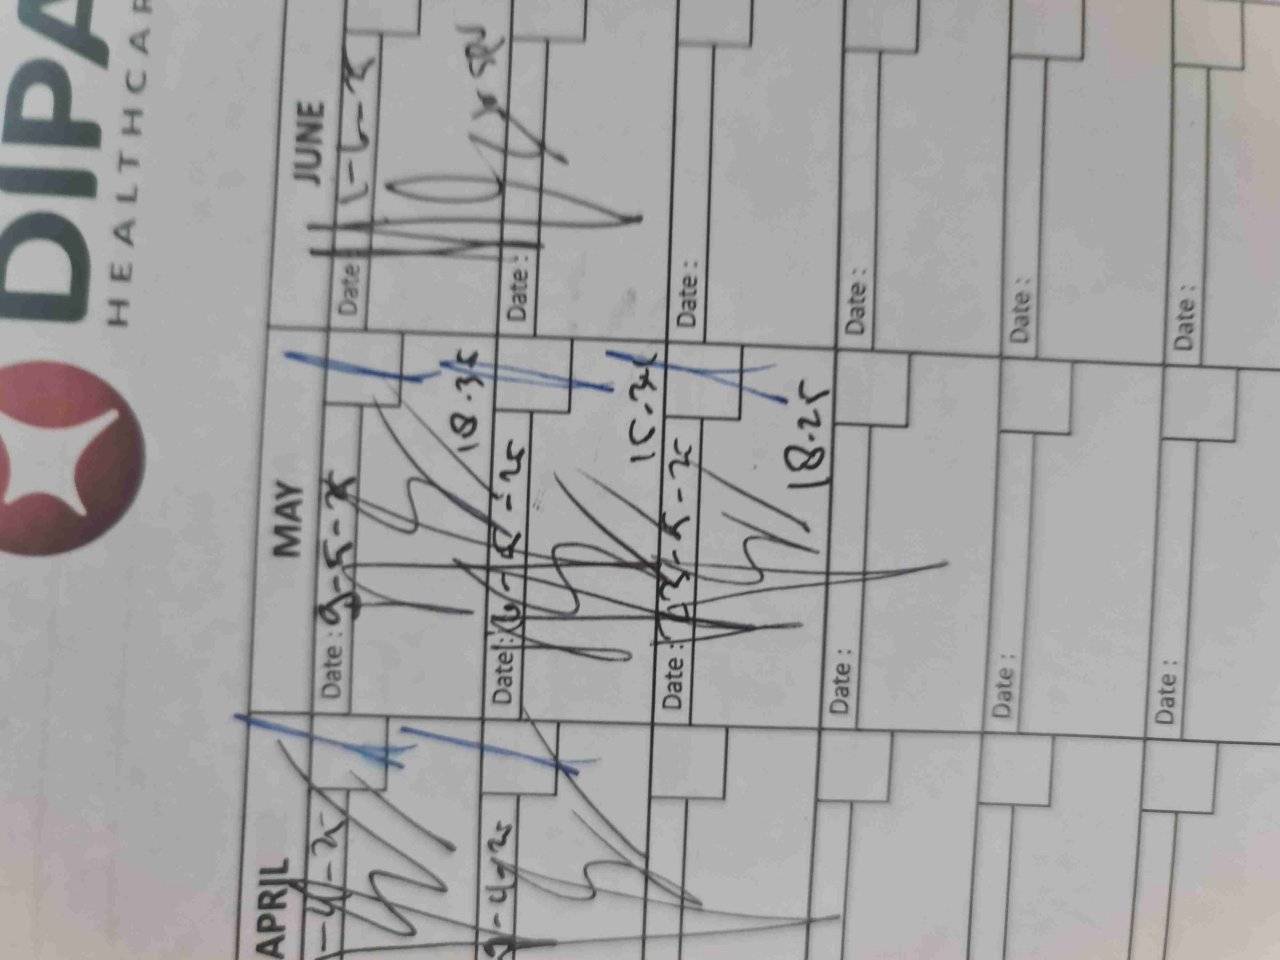 DIPA
HEALTHCAR
APRIL
MAY
JUNE
-4-25
Date : 9-5-25
Date : 1-6-25
18.35
-4-25
Date : 16-5-25
Date :
15.34
Date : 23-5-25
Date :
18.25
Date :
Date :
Date :
Date :
Date :
Date :